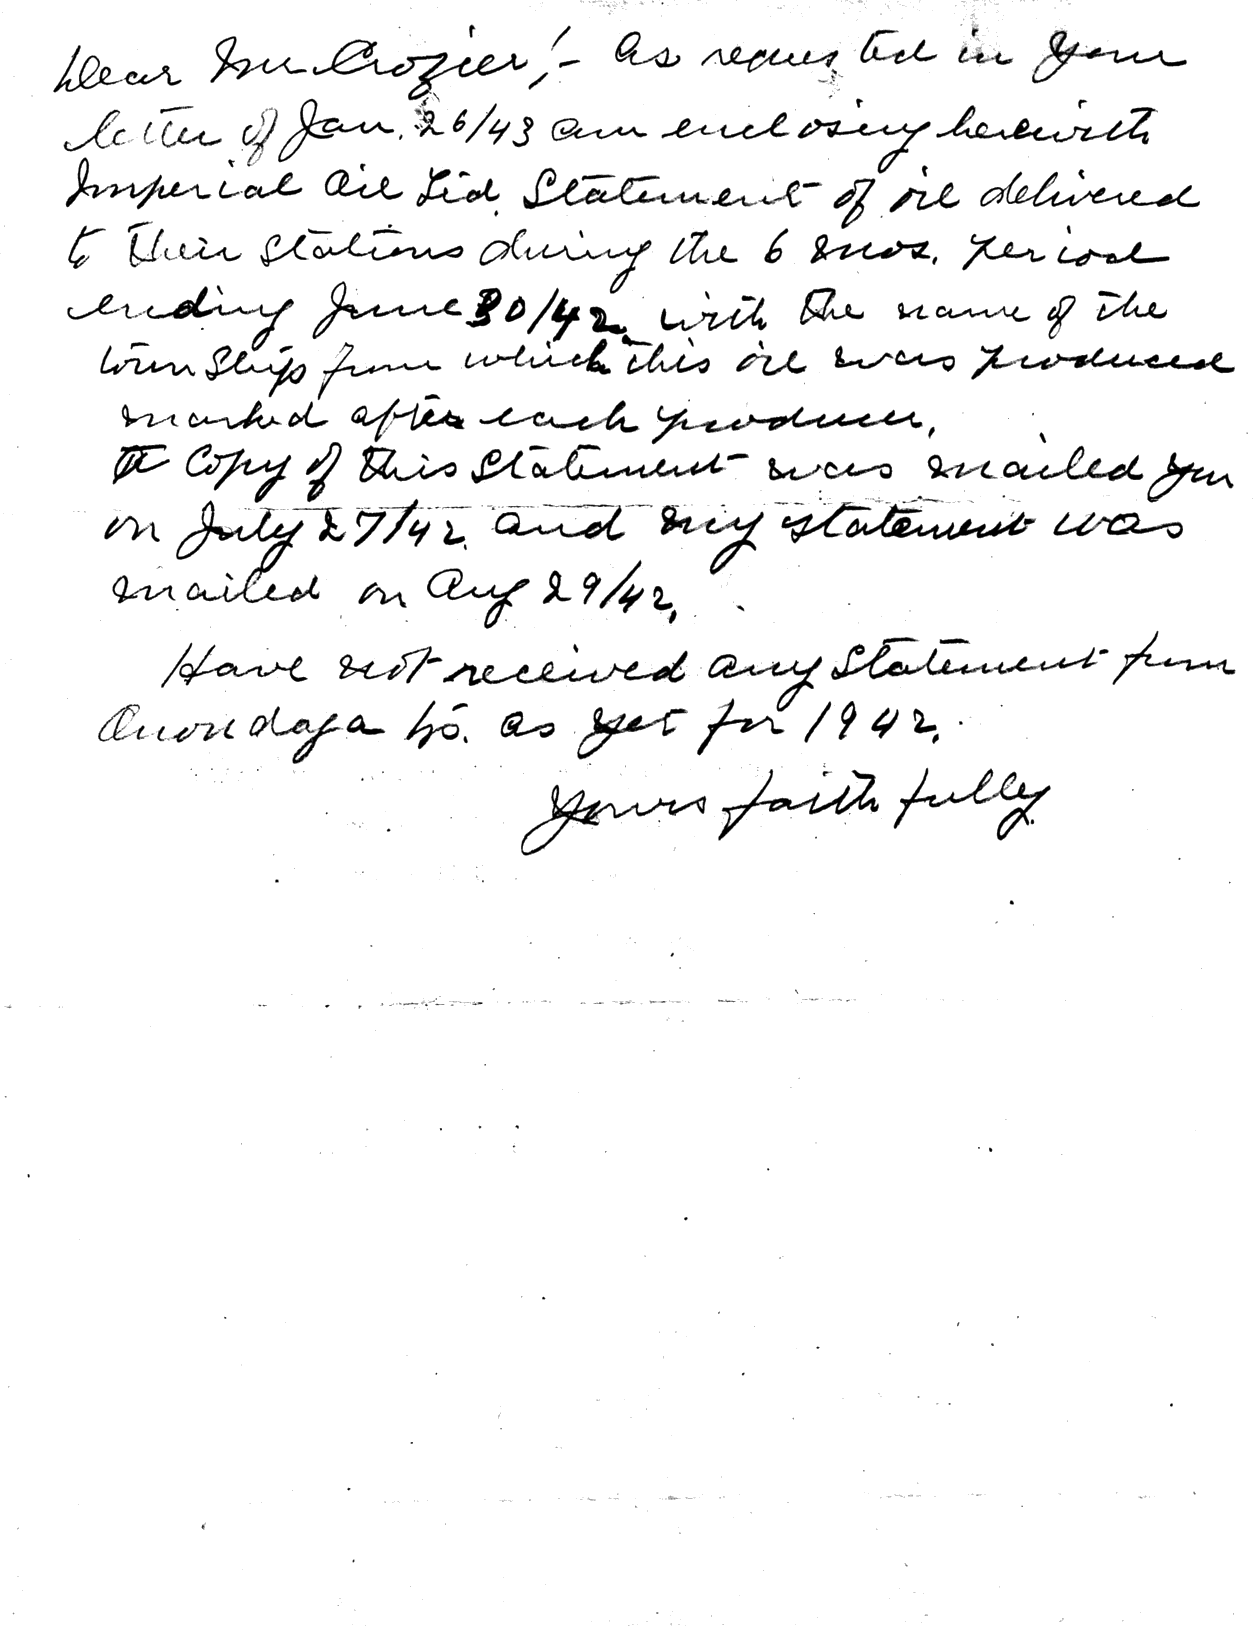 Dear Mr Crozier!- As requested in your
letter of Jan. 26/43 am enclosing herewith
Imperial Oil Ltd. Statement of oil delivered
to their stations during the 6 mos. period
ending June 30/42. with the name of the
township from which this oil was produced
marked after each producer.
A Copy of this Statement was mailed you
on July 27/42. and my statement was
mailed on Aug 29/42.
Have not received any Statement from
Onondaga Co. as yet for 1942.
Yours faithfully